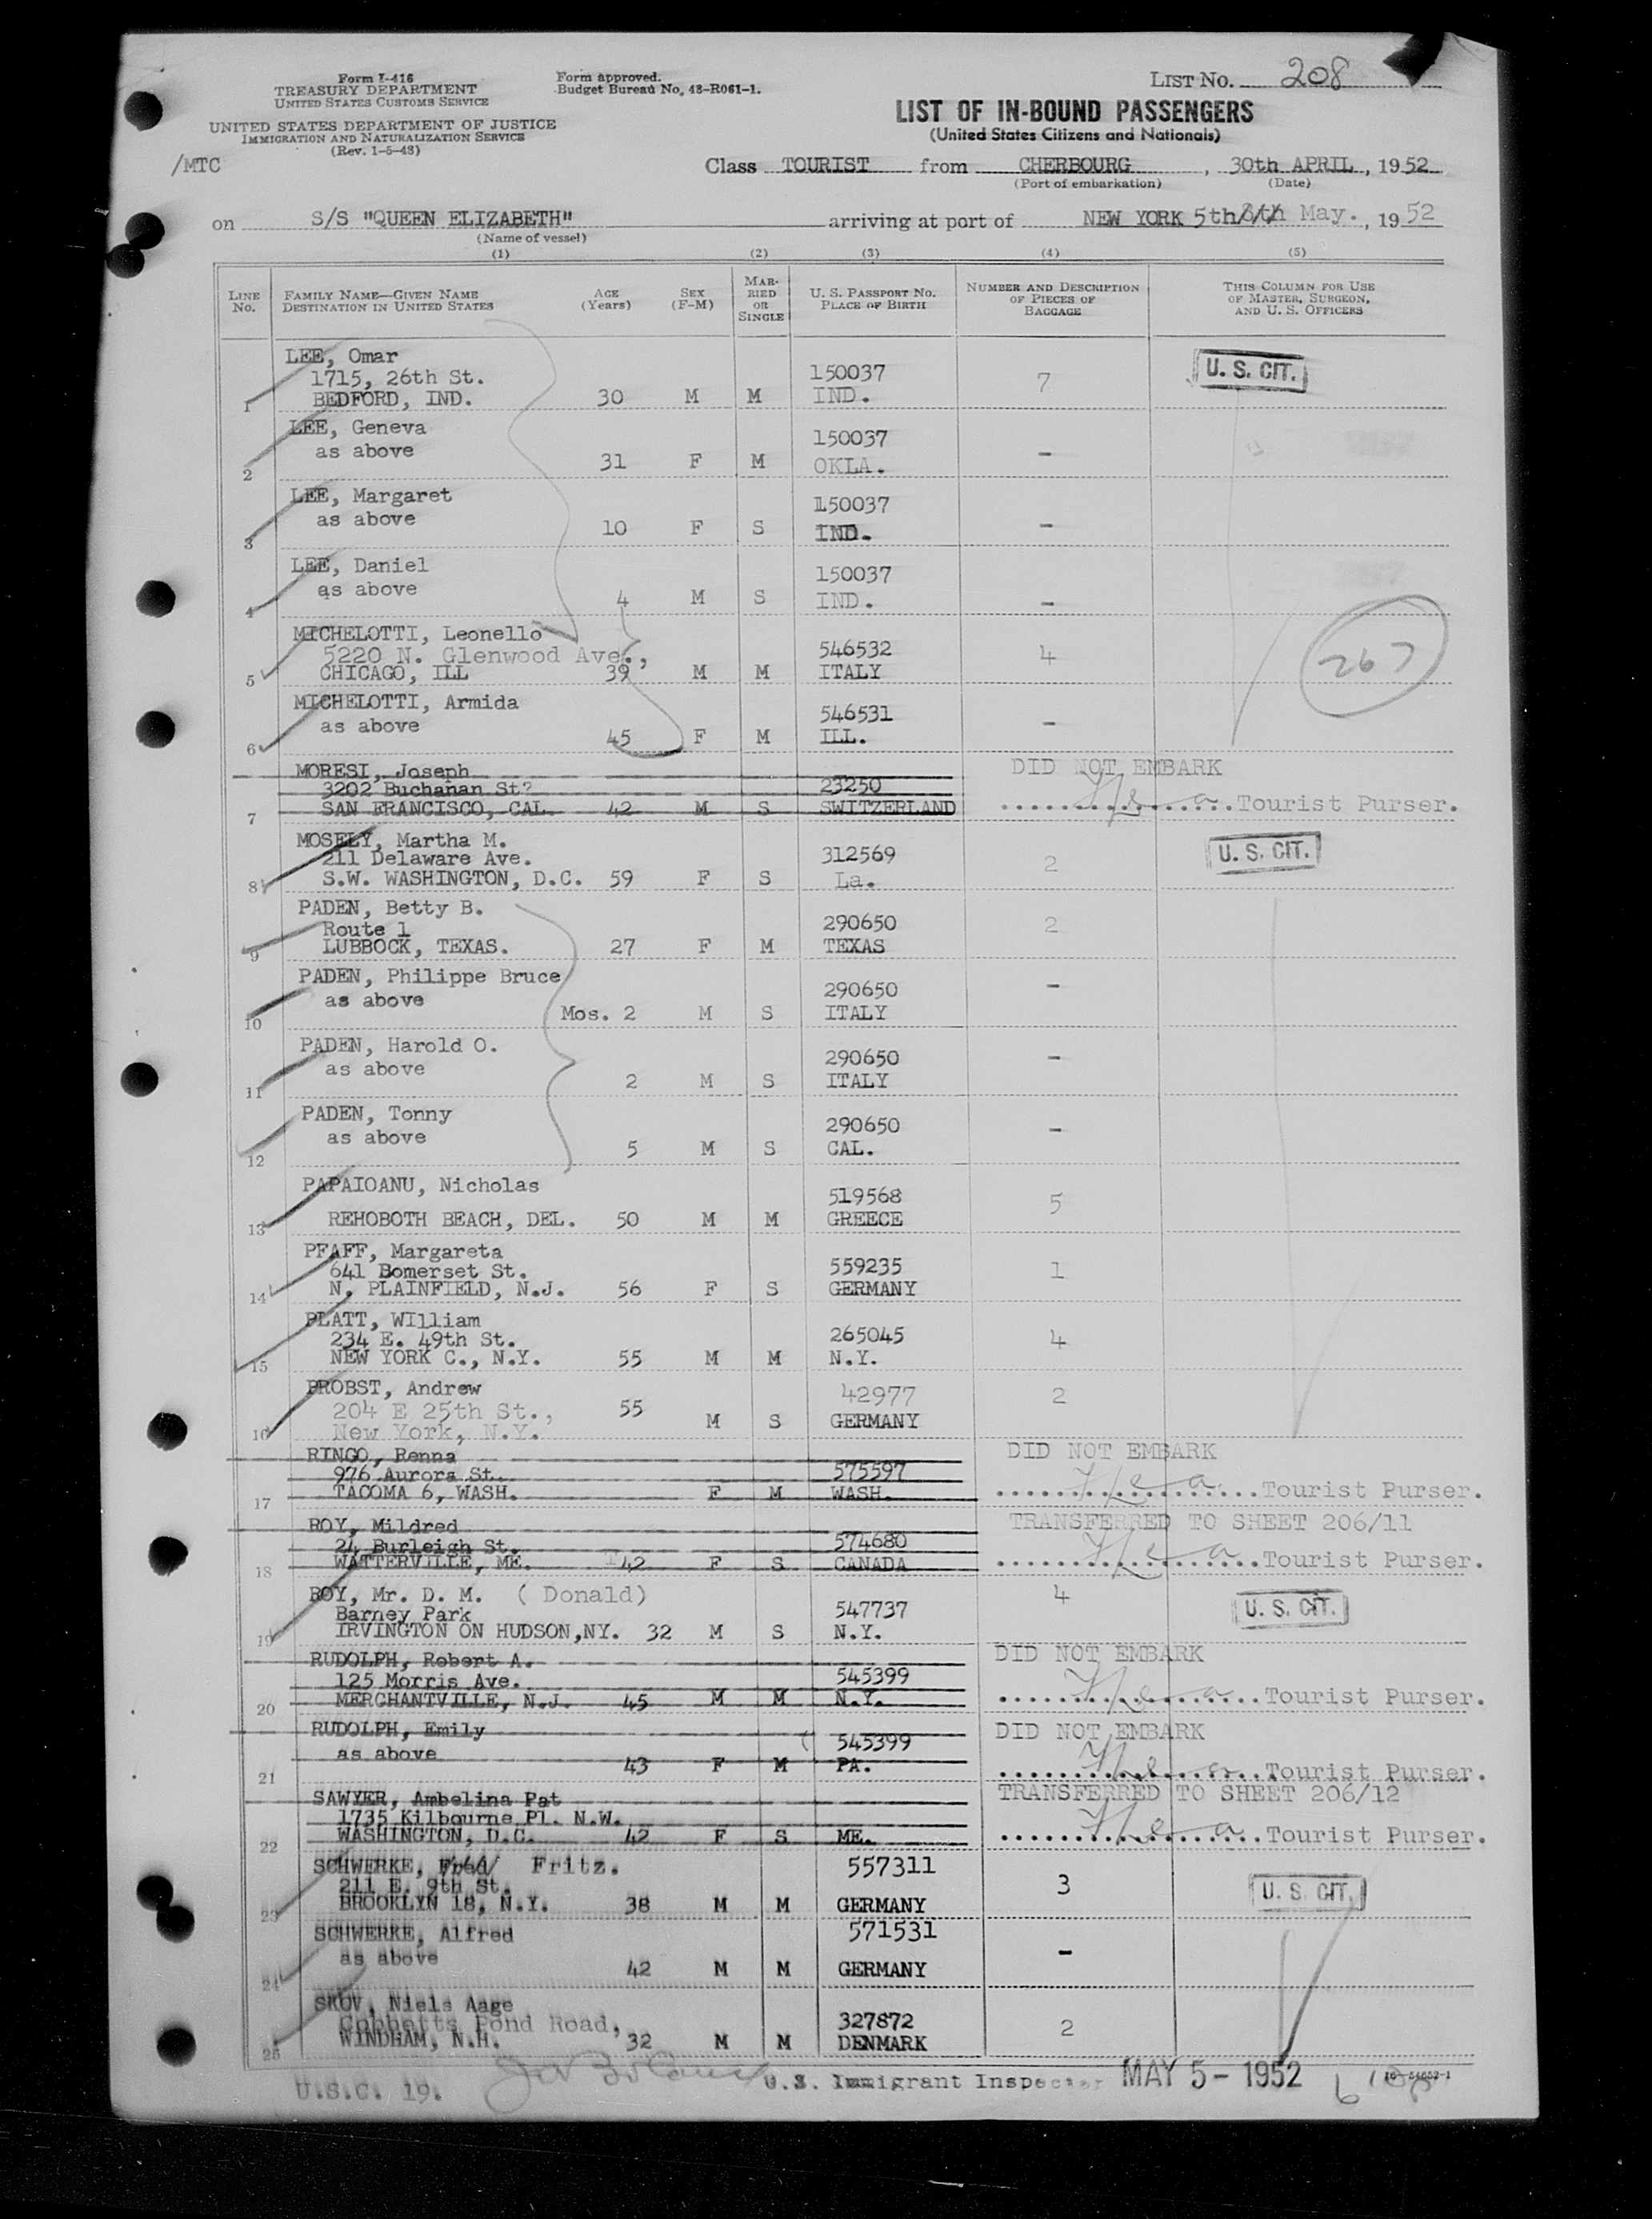 Form I-416
TREASURY DEPARTMENT
UNITED STATES CUSTOMS SERVICE
UNITED STATES DEPARTMENT OF JUSTICE
IMMIGRATION AND NATURALIZATION SERVICE
(Rev. 1-5-48)
/MTC
Form approved.
Budget Bureau No. 43-R061-1.
LIST NO. 208
LIST OF IN-BOUND PASSENGERS
(United States Citizens and Nationals)
Class TOURIST from CHERBOURG, 30th APRIL, 1952
(Port of embarkation) (Date)
on S/S "QUEEN ELIZABETH" arriving at port of NEW YORK 5th May., 1952
(Name of vessel)
(1) (2) (3) (4) (5)
LINE No. FAMILY NAME—GIVEN NAME DESTINATION IN UNITED STATES AGE (Years) SEX (F-M) MARRIED OR SINGLE U. S. PASSPORT NO. PLACE OF BIRTH NUMBER AND DESCRIPTION OF PIECES OF BAGGAGE THIS COLUMN FOR USE OF MASTER, SURGEON, AND U. S. OFFICERS
LEE, Omar
1715, 26th St. 150037 7 U. S. CIT.
1 BEDFORD, IND. 30 M M IND.
LEE, Geneva 150037
2 as above 31 F M OKLA. -
LEE, Margaret 150037
3 as above 10 F S IND. -
LEE, Daniel 150037
4 as above 4 M S IND. -
MICHELOTTI, Leonello
5220 N. Glenwood Ave., 546532 4 267
5 CHICAGO, ILL 39 M M ITALY
MICHELOTTI, Armida 546531
6 as above 45 F M ILL. -
MORESI, Joseph DID NOT EMBARK
3202 Buchanan St? 23250
7 SAN FRANCISCO, CAL. 42 M S SWITZERLAND Tourist Purser.
MOSELY, Martha M.
211 Delaware Ave. 312569 2 U. S. CIT.
8 S.W. WASHINGTON, D.C. 59 F S La.
PADEN, Betty B.
Route 1 290650 2
9 LUBBOCK, TEXAS. 27 F M TEXAS
PADEN, Philippe Bruce 290650 -
as above
10 Mos. 2 M S ITALY
PADEN, Harold O. 290650 -
as above
11 2 M S ITALY
PADEN, Tonny 290650 -
as above
12 5 M S CAL.
PAPAIOANU, Nicholas 519568 5
13 REHOBOTH BEACH, DEL. 50 M M GREECE
PFAFF, Margareta
641 Bomerset St. 559235 1
14 N. PLAINFIELD, N.J. 56 F S GERMANY
PLATT, WIlliam
234 E. 49th St. 265045 4
15 NEW YORK C., N.Y. 55 M M N.Y.
PROBST, Andrew 42977 2
204 E 25th St., 55
16 New York, N.Y. M S GERMANY
RINGO, Renna DID NOT EMBARK
976 Aurora St. 575597
17 TACOMA 6, WASH. F M WASH. Tourist Purser.
ROY, Mildred TRANSFERRED TO SHEET 206/11
24 Burleigh St. 574680
18 WATTERVILLE, ME. 42 F S CANADA Tourist Purser.
ROY, Mr. D. M. (Donald) 4
Barney Park 547737 U. S. CIT.
19 IRVINGTON ON HUDSON,NY. 32 M S N.Y.
RUDOLPH, Robert A. DID NOT EMBARK
125 Morris Ave. 545399
20 MERCHANTVILLE, N.J. 45 M M N.Y. Tourist Purser.
RUDOLPH, Emily DID NOT EMBARK
as above 545399
21 43 F M PA. Tourist Purser.
SAWYER, Ambelina Pat TRANSFERRED TO SHEET 206/12
1735 Kilbourne Pl. N.W.
22 WASHINGTON, D.C. 42 F S ME. Tourist Purser.
SCHWERKE, Fred Fritz. 557311
211 E. 9th St. 3 U. S. CIT.
23 BROOKLYN 18, N.Y. 38 M M GERMANY
SCHWERKE, Alfred 571531
as above -
24 42 M M GERMANY
SKOV, Niels Aage
Cobbetts Pond Road, 327872 2
25 WINDHAM, N.H. 32 M M DENMARK
U.S.C. 19. U.S. Immigrant Inspector MAY 5 - 1952 16-54652-1